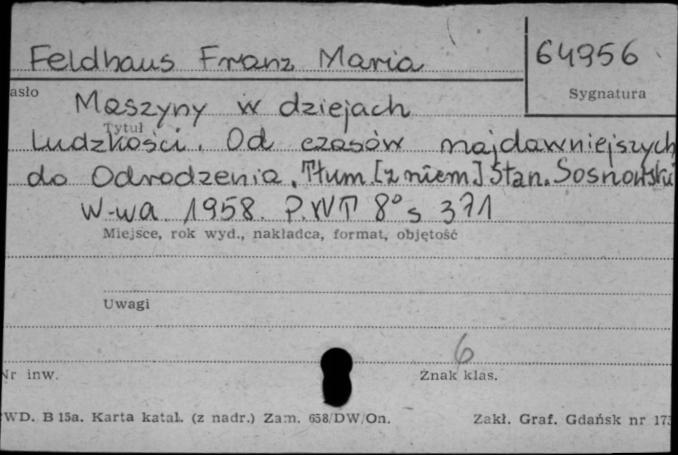 Feldhaus Franz Maria
64956
asło
Sygnatura
Maszyny w dziejach
Tytuł
Ludzkości. Od czasów najdawniejszych
do Odrodzenia. Tłum. [z niem.] Stan. Sosnowski
W-wa 1958. P.WT 8° s 371
Miejsce, rok wyd., nakładca, format, objętość
Uwagi
6
Nr inw.
Znak klas.
WD. B 15a. Karta katal. (z nadr.) Zam. 658/DW/On.
Zakł. Graf. Gdańsk nr 173